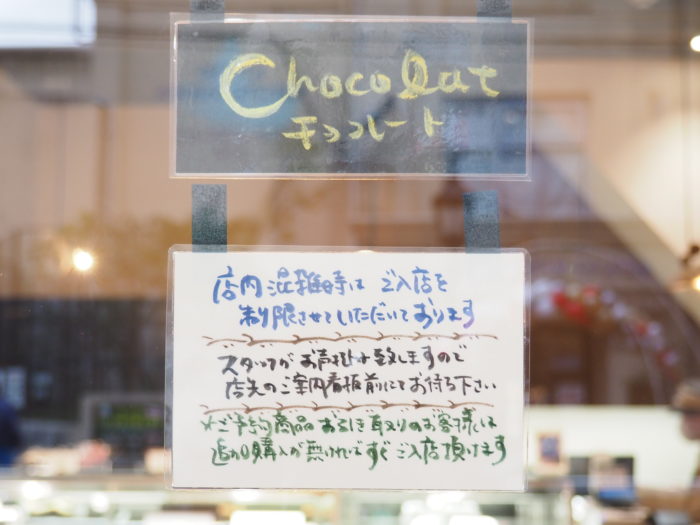 Chocolat
チョコレート
店内混雑時は ご入店を
制限させていただいております
スタッフが お声掛け致しますので
店先のご案内看板前にてお待ち下さい
*ご予約商品お引き取りのお客様は
追加購入が無ければすぐご入店頂けます